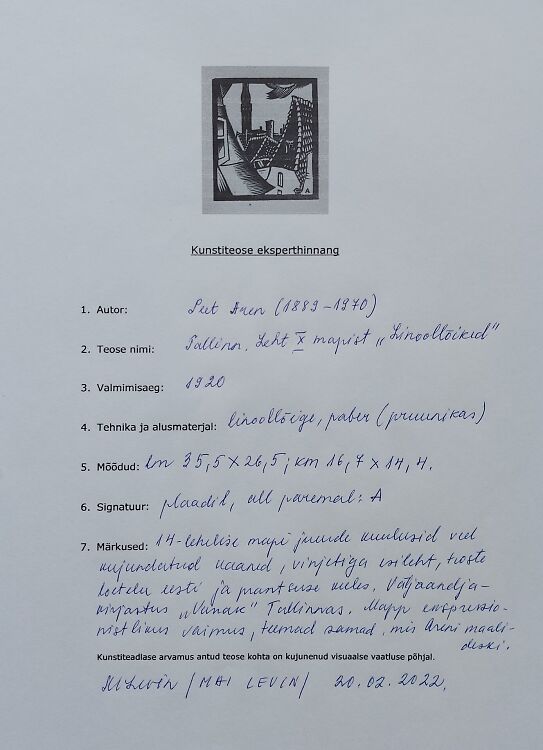 A
Kunstiteose eksperthinnang
1. Autor: Peet Aren (1889-1970)
2. Teose nimi: Tallinn. Leht X mapist „Linoollõiked"
3. Valmimisaeg: 1920
4. Tehnika ja alusmaterjal: linoollõige, paber (pruunikas)
5. Mõõdud: lm 35,5 x 26,5; km 16,7 x 14,4.
6. Signatuur: plaadil, all paremal: A
7. Märkused: 14-lehelise mapi juurde kuulusid veel
kujundatud kaaned, vinjetiga esileht, teoste
loetelu eesti ja prantsuse keeles. Väljaandja-
kirjastus „Varrak" Tallinnas. Mapp ekspressio-
nistlikus vaimus, teemad samad, mis Areni maali-
deski.
Kunstiteadlase arvamus antud teose kohta on kujunenud visuaalse vaatluse põhjal.
MLevin /MAI LEVIN/ 20.02.2022.